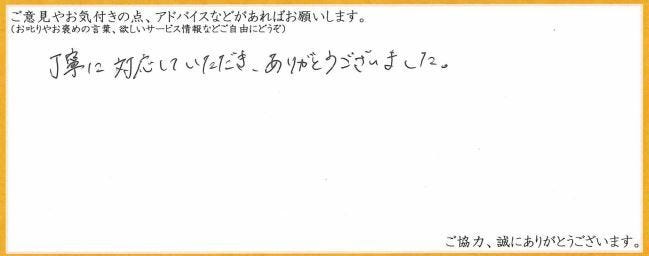 ご意見やお気付きの点、アドバイスなどがあればお願いします。
(お叱りやお褒めの言葉、欲しいサービス情報などご自由にどうぞ)
丁寧に対応していただき、ありがとうございました。
ご協力、誠にありがとうございます。